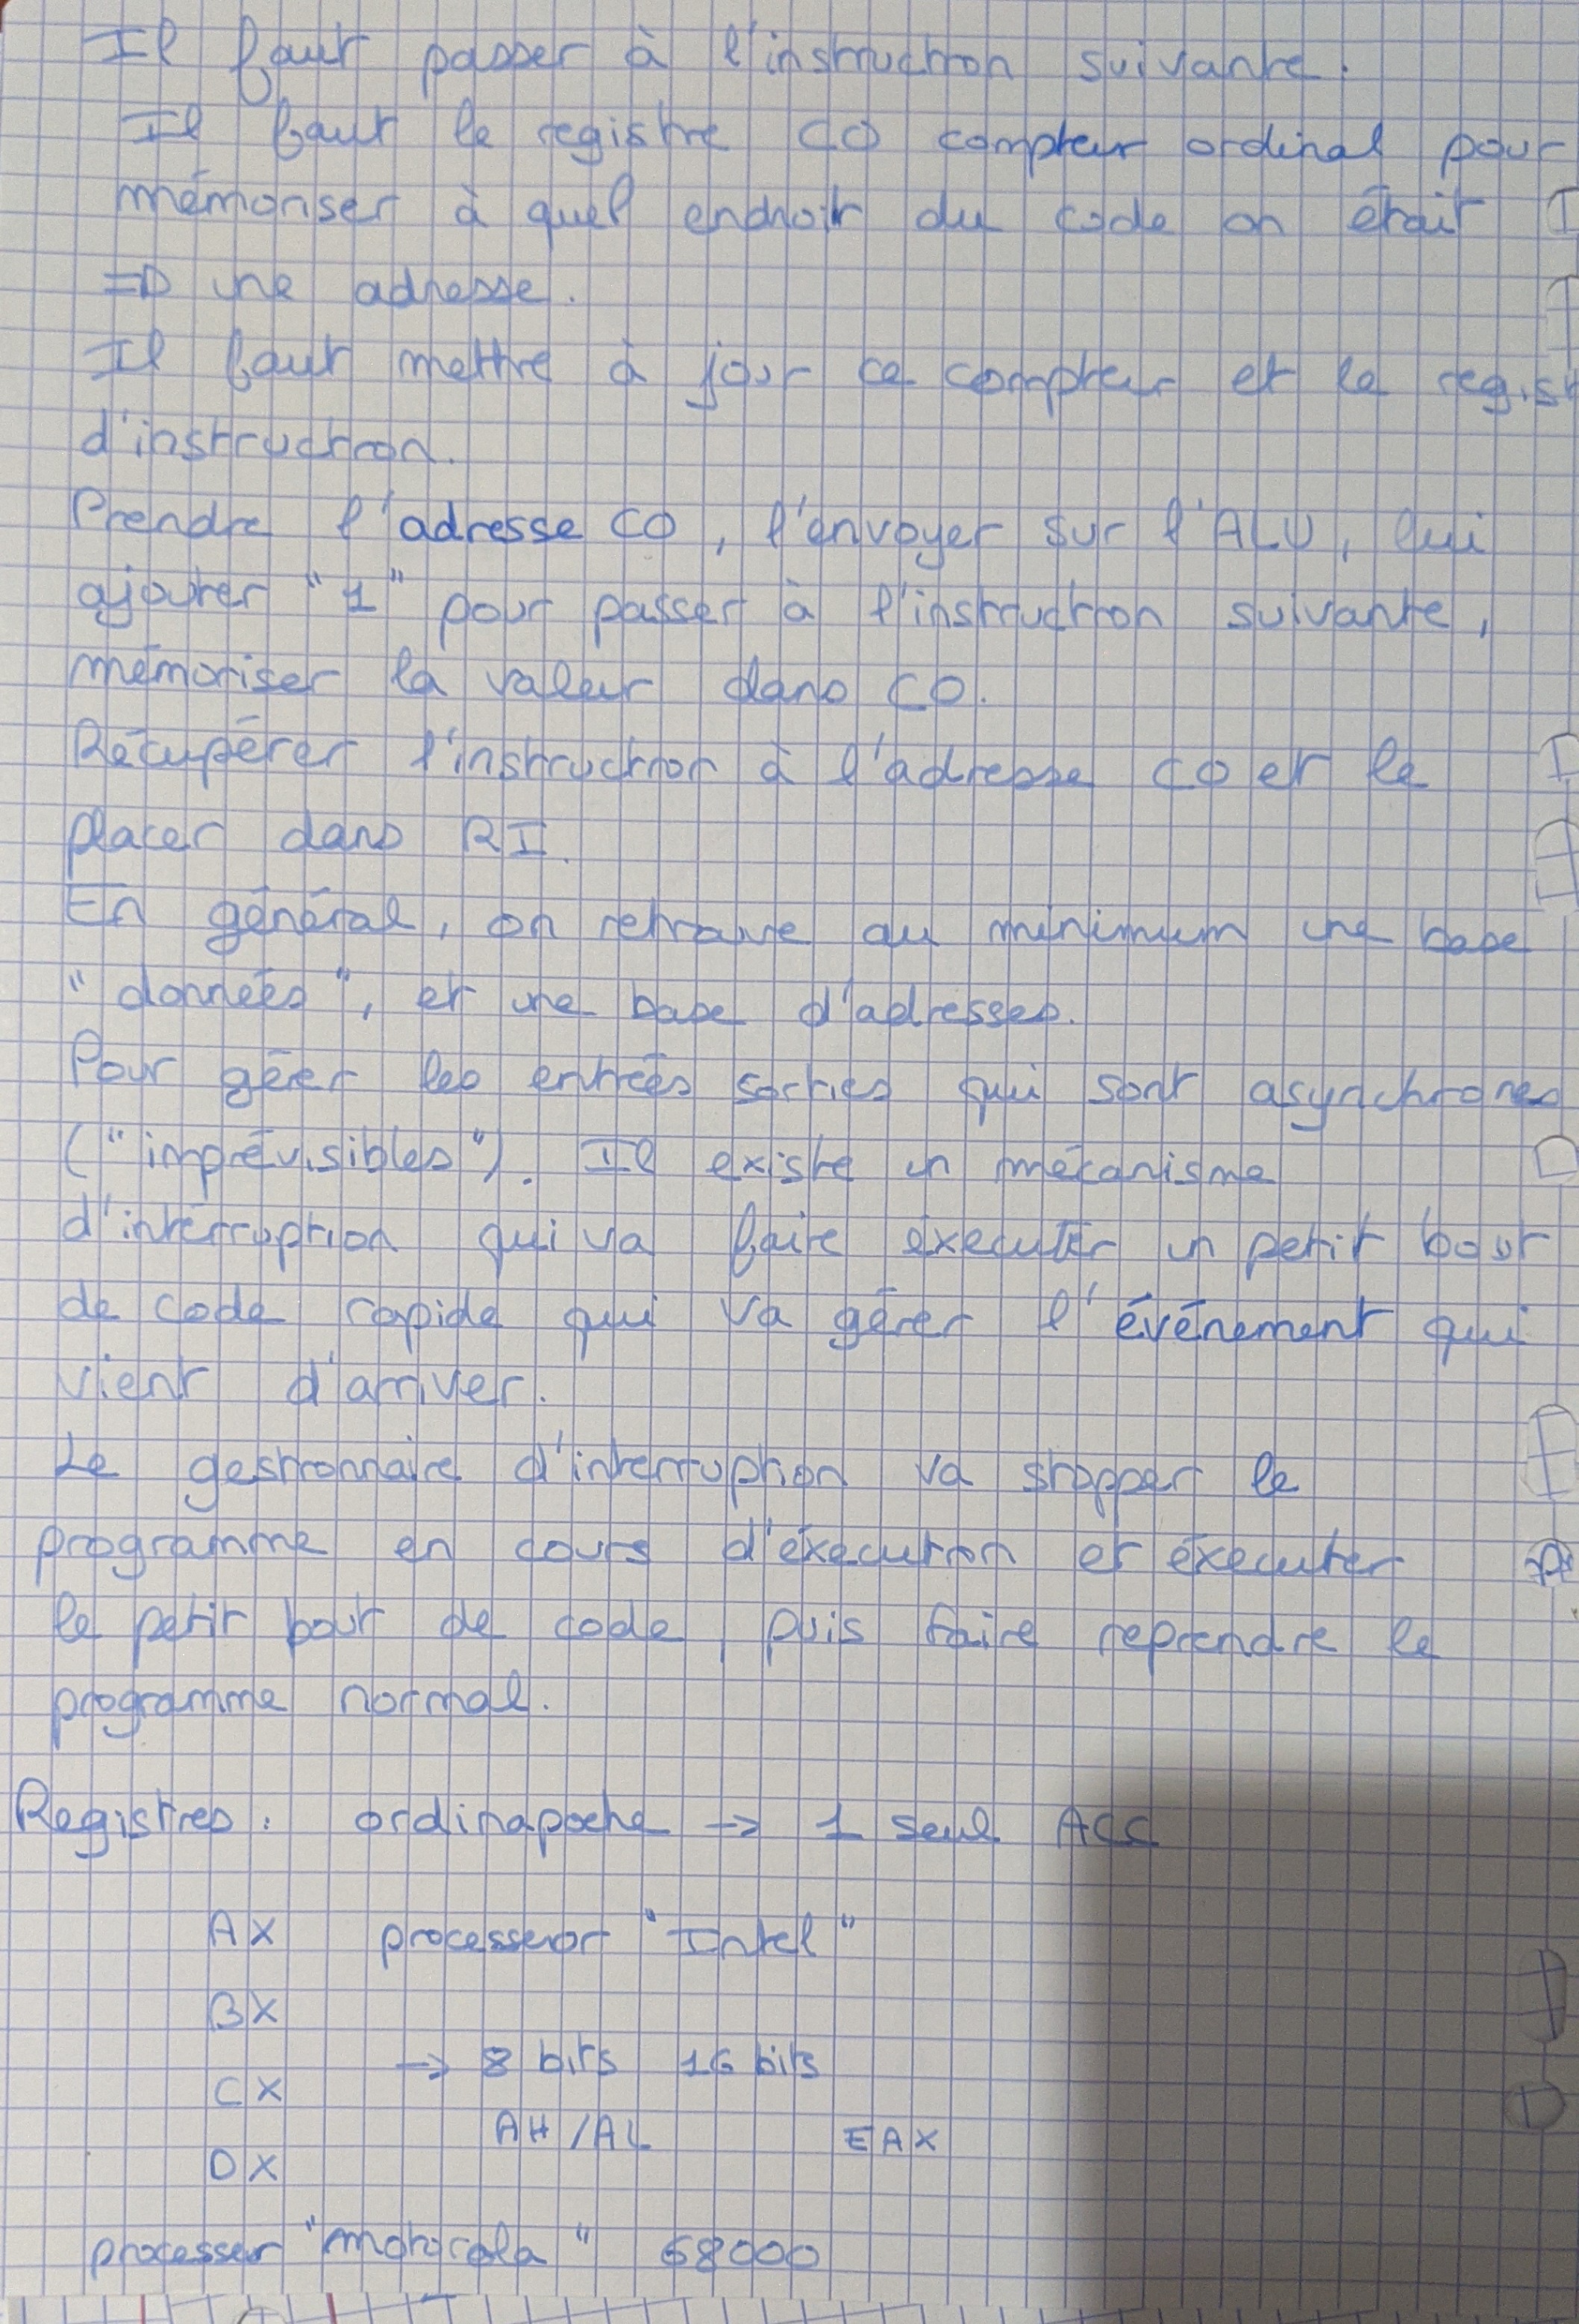 Il faut passer à l'instruction suivante.
Il faut le registre CO compteur ordinal pour
mémoriser à quel endroit du code on était
=D une adresse.
Il faut mettre à jour ce compteur et le regist
d'instruction.
Prendre l'adresse CO, l'envoyer sur l'ALU, lui
ajouter "1" pour passer à l'instruction suivante,
mémoriser la valeur dans CO.
Récupérer l'instruction à l'adresse CO et le
placer dans RI.
En général, on retrouve au minimum une base
"données", et une base d'adresses.
Pour gérer les entrées sorties qui sont asynchrones
("imprévisibles"). Il existe un mécanisme
d'interruption qui va faire éxecuter un petit bout
de code rapide qui va gérer l'événement qui
vient d'arriver.
Le gestionnaire d'interruption va stopper le
programme en cours d'éxecution et éxecuter
le petit bout de code, puis faire reprendre le
programme normal.
Registres : ordinapoche → 1 seul ACC
AX processeur "Intel"
BX
→ 8 bits 16 bits
CX
AH /AL EAX
DX
processeur "motorola" 68000